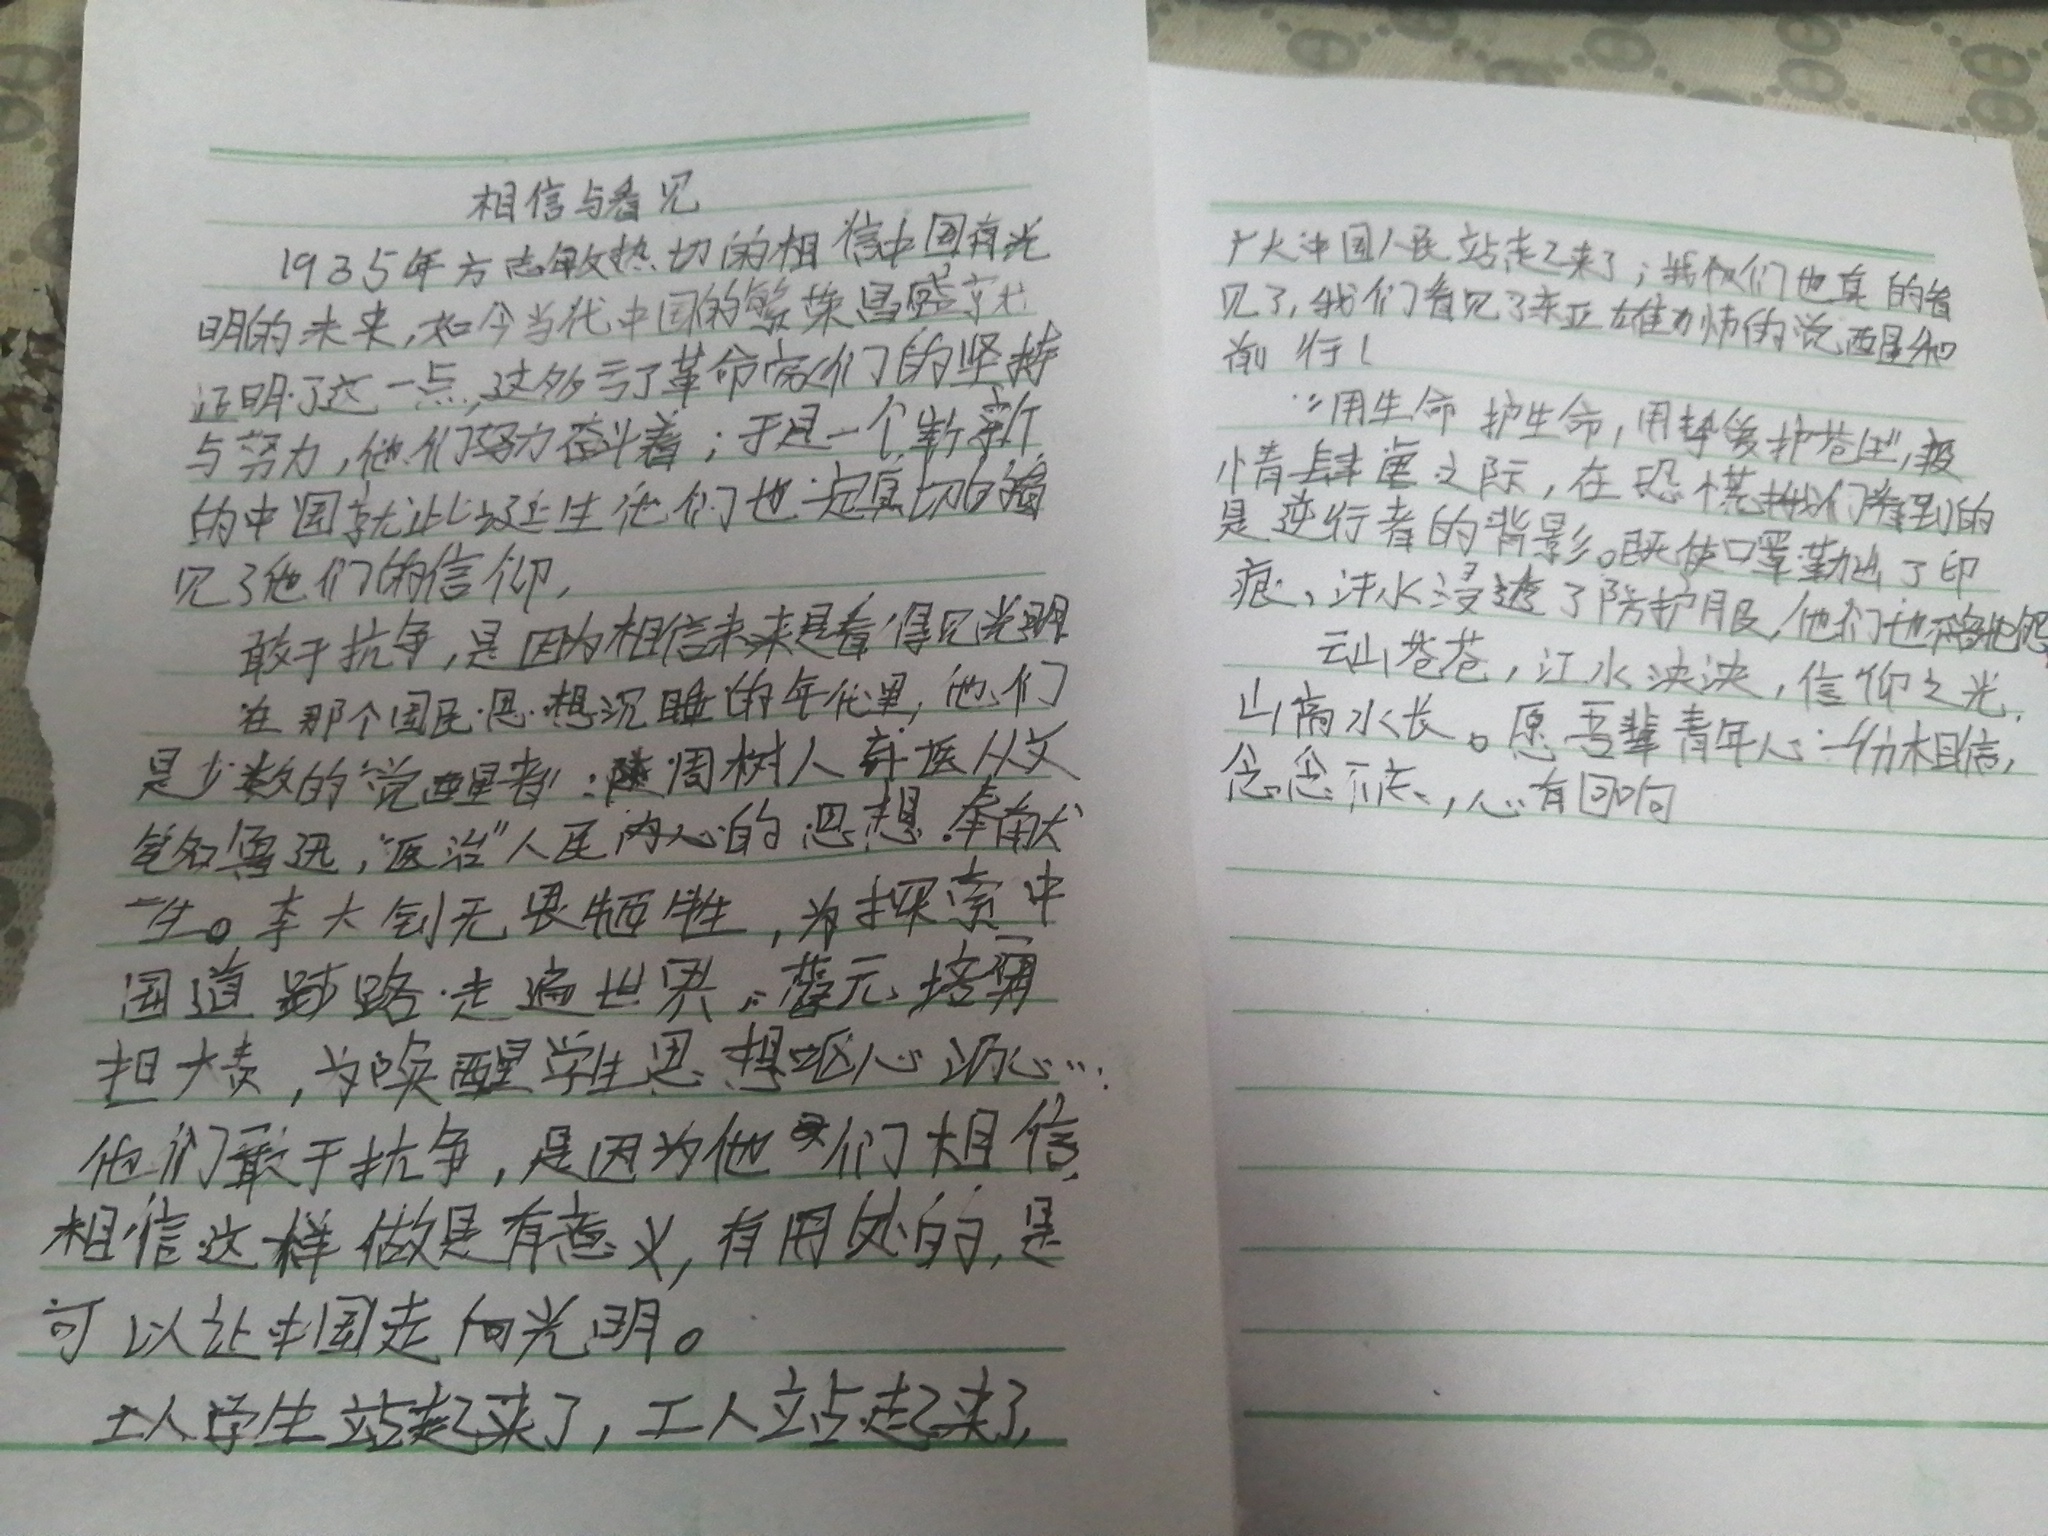 相信与看见
1935年方志敏热切的相信中国有光
明的未来,如今当代中国的繁荣昌盛就
证明了这一点,这多亏了革命家们的坚持
与努力,他们努力奋斗着;于是一个崭新
的中国就此诞生他们也一起真切的看
见了他们的信仰.
敢于抗争,是因为相信未来是看得见光明
在那个国民思想沉睡的年代里,他们
是少数的“觉醒者”:周树人弃医从文
笔名鲁迅,“医治”人民内心的思想.奉献
一生。李大钊无畏牺牲,为探索中
国道路走遍世界.蔡元培肩
担大责,为唤醒学生思想呕心沥心…
他们敢于抗争,是因为他们相信,
相信这样做是有意义,有用处的,是
可以让中国走向光明。
学生站起来了,工人站起来了,
广大中国人民站起来了;我们也真的看
见了,我们看见了东亚雄狮的觉醒和
前行!
“用生命护生命,用挚爱护苍生”,疫
情肆虐之际,在恐慌我们看到的
是逆行者的背影。既使口罩勒出了印
痕、汗水浸透了防护服,他们也
云山苍苍,江水泱泱,信仰之光.
山高水长。愿吾辈青年心一份相信,
念念不忘,心有回响